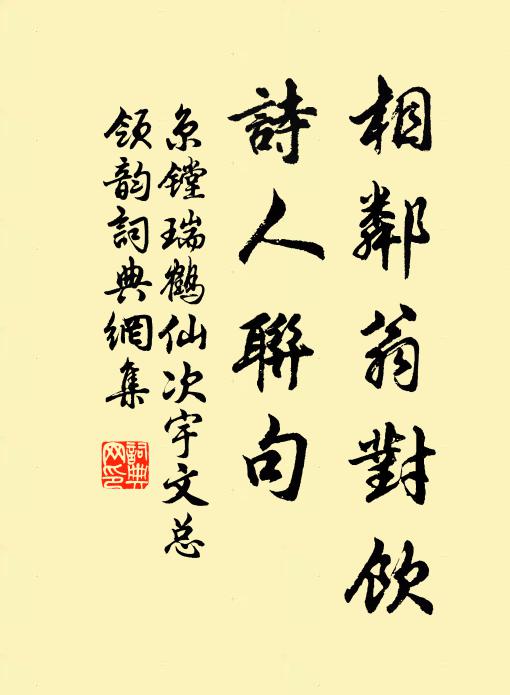 相鄰翁對飲
詩人聯句
京鏜瑞鶴仙次宇文总
领韵詞典網集
詞典
网印